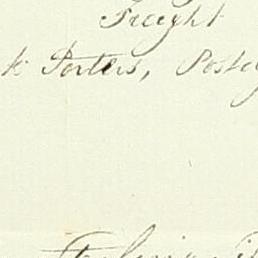 Freight
k Porters, Postag